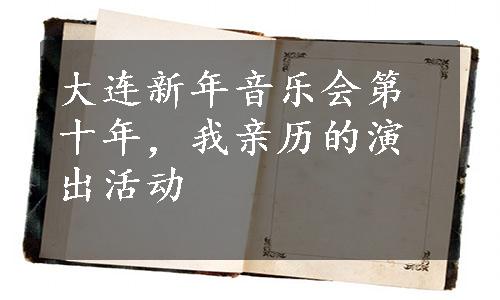 大连新年音乐会第
十年，我亲历的演
出活动